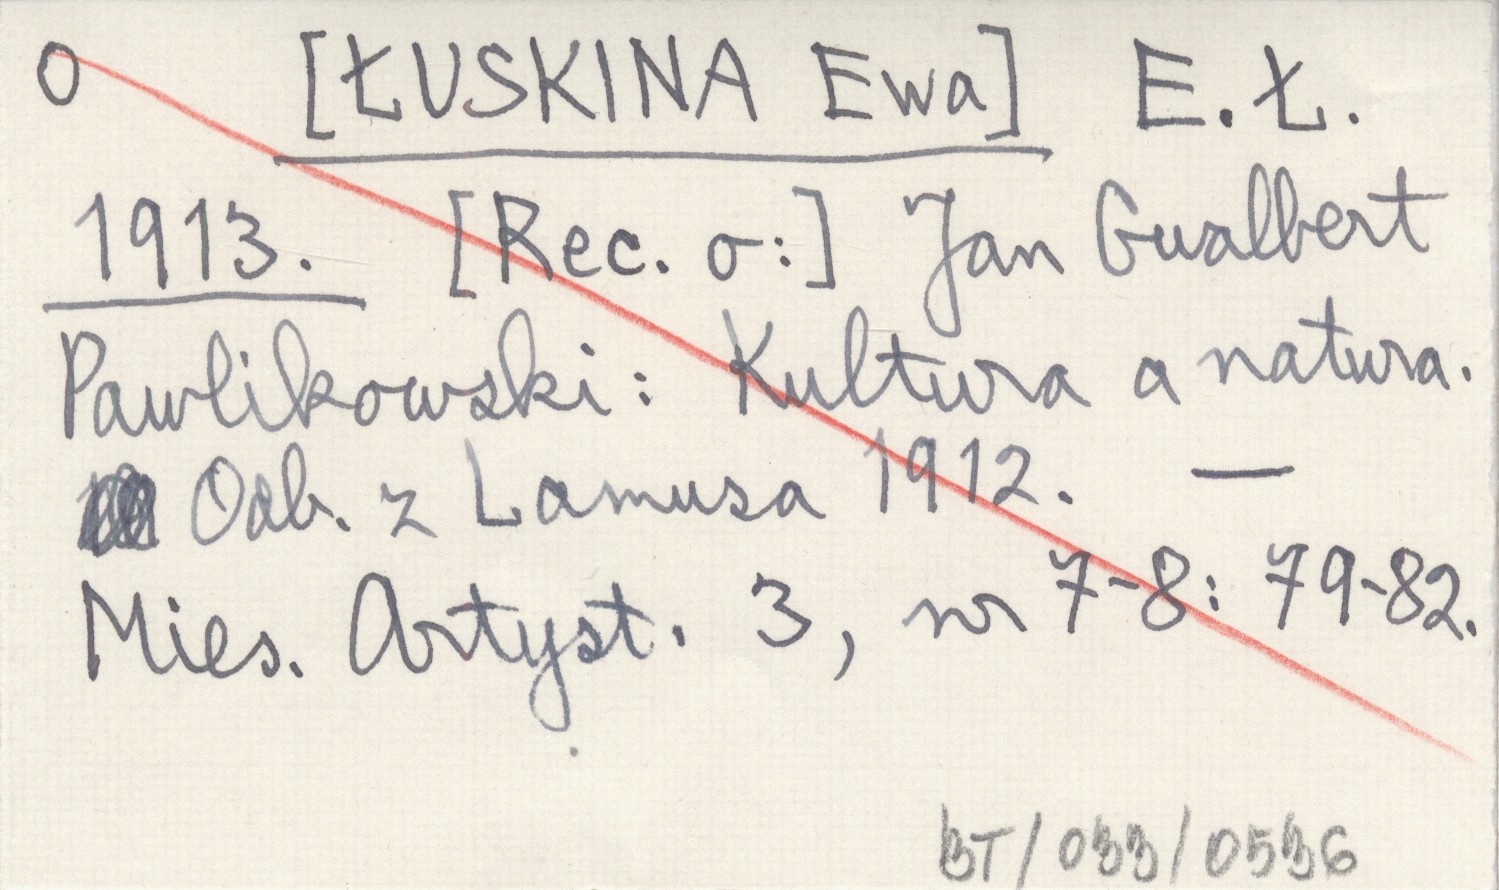 O [ŁUSKINA Ewa] E. Ł.
1913. [Rec. o:] Jan Gwalbert
Pawlikowski: Kultura a natura.
Odb. z Lamusa 1912. —
Mies. Artyst. 3, nr 7-8: 79-82.
BT/033/0536